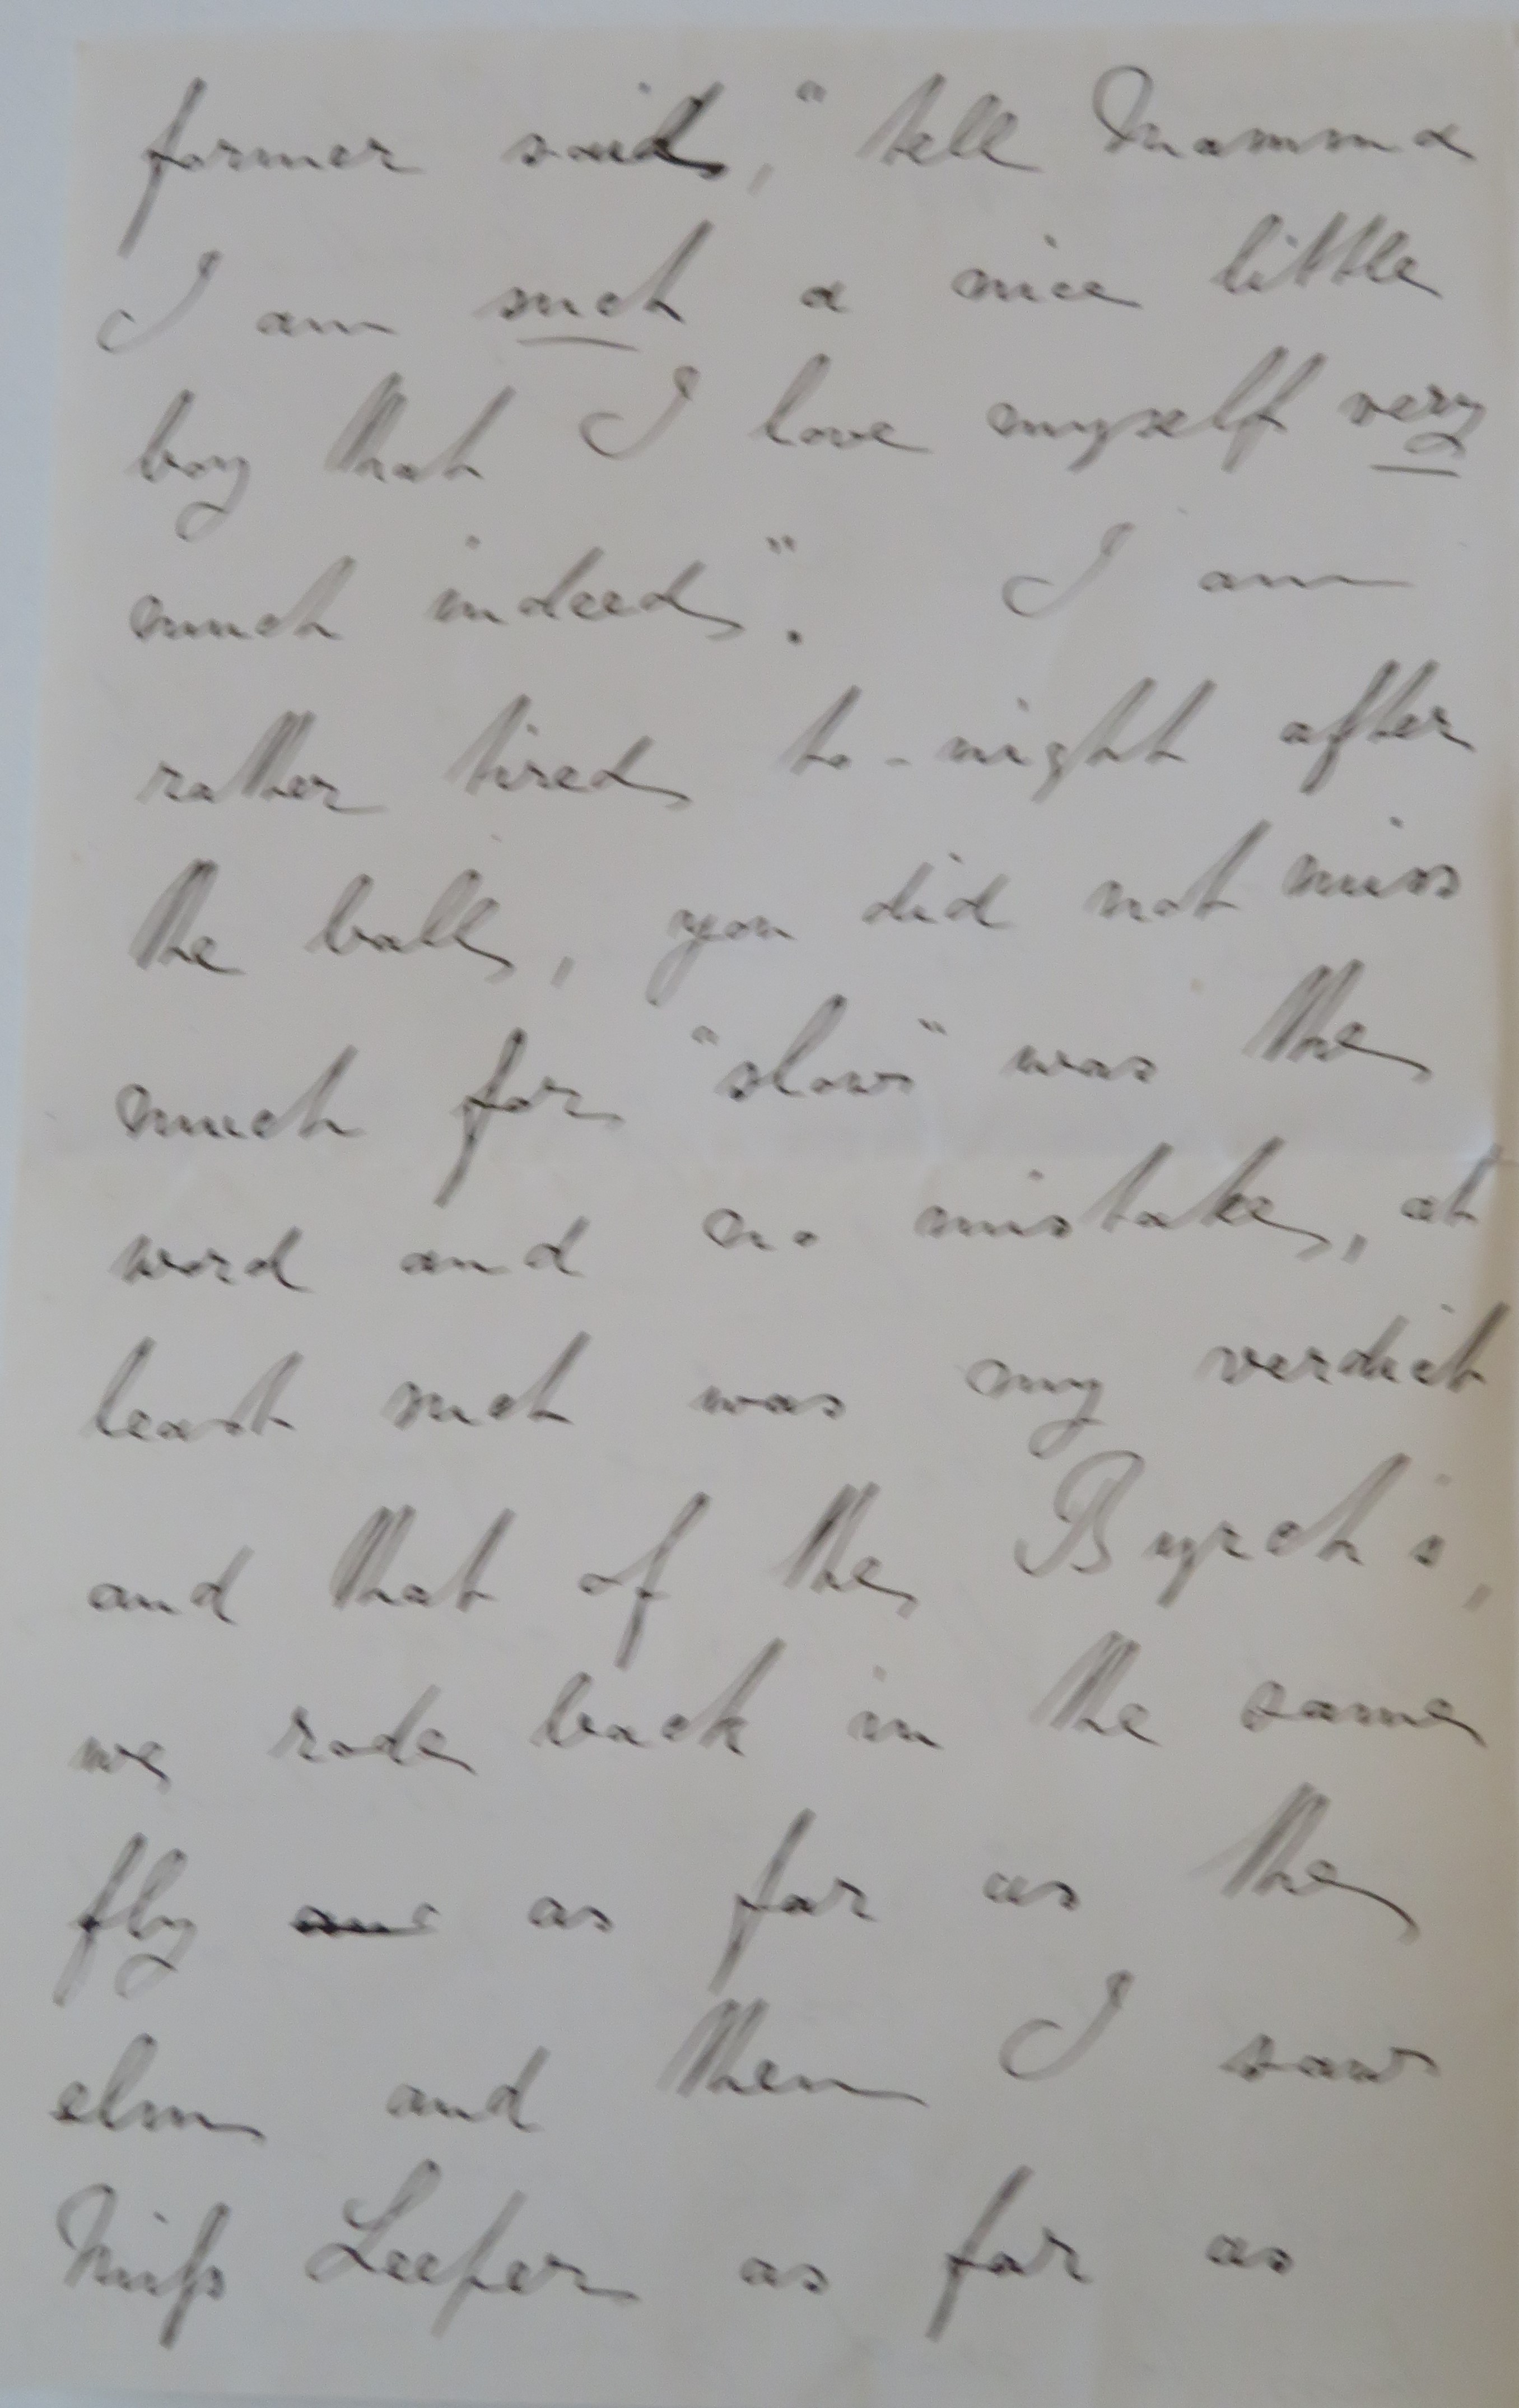 former said, "tell Mamma
I am such a nice little
boy that I love myself very
much indeed". I am
rather tired to-night after
the ball, you did not miss
much for "slow" was the
word and no mistake, at
least such was my verdict
and that of the Byrch's,
we rode back in the same
fly as far as the
elm and then I saw
Miss Leeper as far as